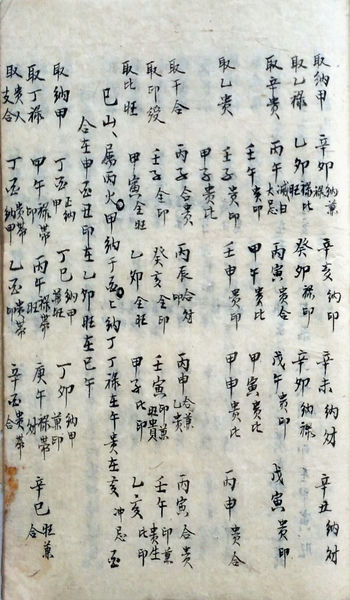 取納甲 辛卯納祿兼 辛亥納印 辛未納財 辛丑納財
取乙祿 乙卯祿比旺 癸卯祿印 辛卯納祿
取辛貴 丙午滅日大忌 丙寅貴合 戊午貴印 戊寅貴印
壬午貴印 甲午貴比 甲寅貴比
取乙貴 壬子貴印 壬申貴印 甲申貴比 丙申貴合
甲子貴比
取干合 丙子合貴 丙辰合財 丙申合兼乙貴 丙寅合貴
取印綬 壬子全印 癸亥全印 壬寅印兼貴 壬午印兼貴
取比旺 甲寅全旺 乙卯全旺 甲子比印 乙亥比印
巳山屬丙火甲納于丁丁祿在午貴在亥冲忌酉
合在申酉丑印在乙卯旺在巳午
取納甲 丁酉納甲 丁巳納甲兼旺 丁卯納甲兼印
取丁祿 甲午祿帶印 丙午祿帶旺 庚午祿帶財 辛巳旺兼合
取貴人支合 丁酉貴帶納甲 乙酉貴帶印 辛酉貴帶合